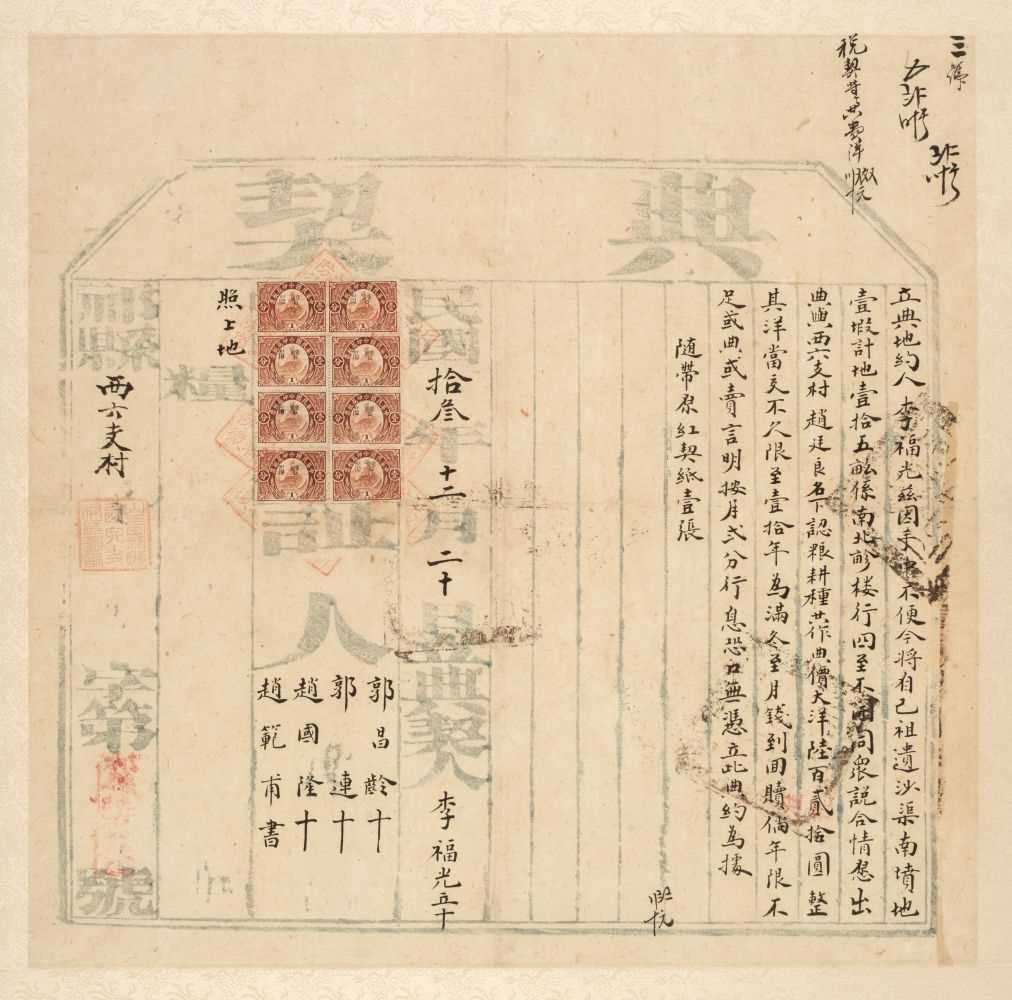 三張
税契
典契
立典地約人李福光兹因手中不便今將自己祖遺沙渠南墳地
壹塅計地壹拾五畝係南北畛楼行四至不開同衆説合情愿出
典與西六支村趙廷良名下認粮耕種共作典價大洋陸百貳拾圓整
其洋當交不欠限至壹拾年為滿冬至月錢到回贖倘年限不
足或典或賣言明按月弍分行息恐口無憑立此典約為據
随帶原紅契紙壹張
民國拾叁年十二月二十 日立典契人 李福光五十
郭昌齡十
郭連十
証人 趙國隆十
趙範甫書
糧
照上地
縣
西六支村
字第
號